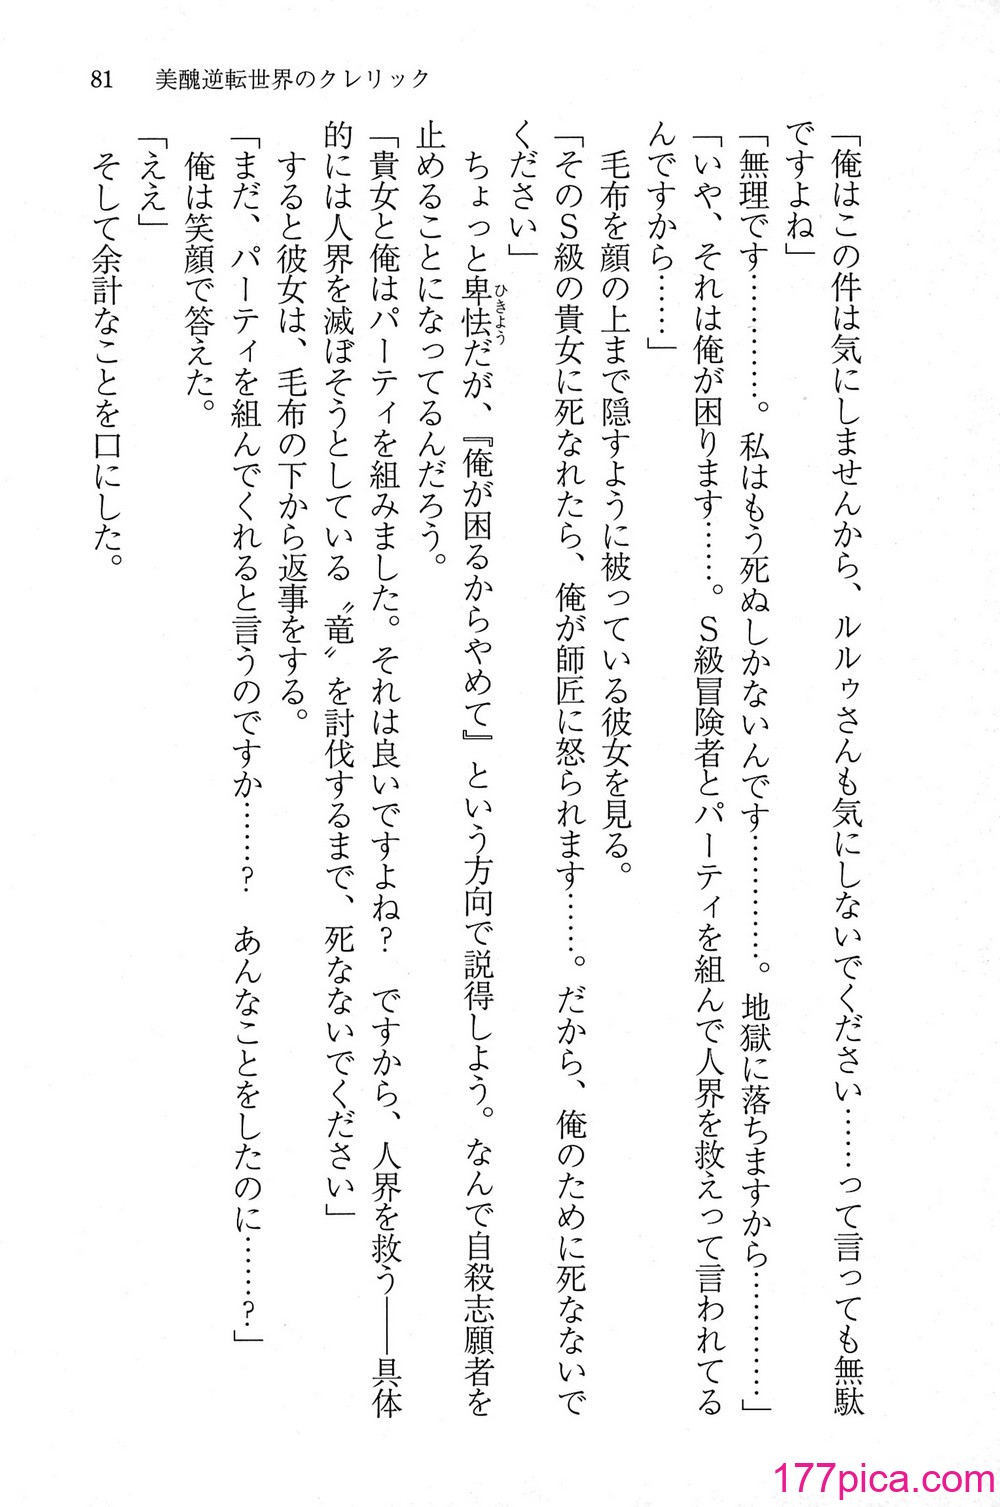 81　美醜逆転世界のクレリック
「俺はこの件は気にしませんから、ルルゥさんも気にしないでください……って言っても無駄
ですよね」
「無理です…………。私はもう死ぬしかないんです…………。地獄に落ちますから…………」
「いや、それは俺が困ります……。Ｓ級冒険者とパーティを組んで人界を救えって言われてる
んですから……」
　毛布を顔の上まで隠すように被っている彼女を見る。
「そのＳ級の貴女に死なれたら、俺が師匠に怒られます……。だから、俺のために死なないで
ください」
　ちょっと卑怯だが、『俺が困るからやめて』という方向で説得しよう。なんで自殺志願者を
ひきょう
止めることになってるんだろう。
「貴女と俺はパーティを組みました。それは良いですよね？　ですから、人界を救う――具体
的には人界を滅ぼそうとしている〝竜〟を討伐するまで、死なないでください」
　すると彼女は、毛布の下から返事をする。
「まだ、パーティを組んでくれると言うのですか……？　あんなことをしたのに……？」
　俺は笑顔で答えた。
「ええ」
　そして余計なことを口にした。
177pica.com